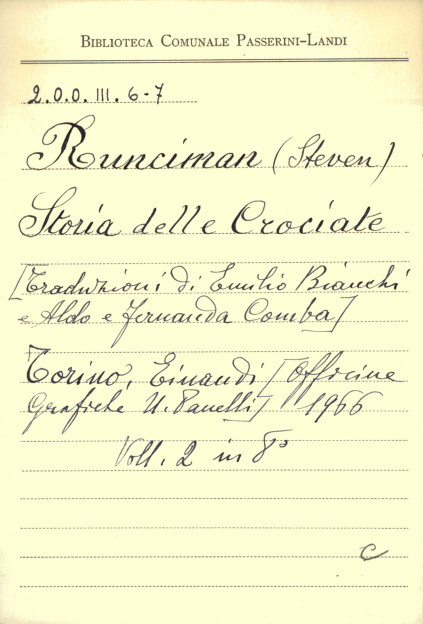 BIBLIOTECA COMUNALE PASSERINI-LANDI
2.0.0. III. 6-7
Runciman (Steven)
Storia delle Crociate
[Traduzioni di Emilio Bianchi
e Aldo e Fernanda Comba]
Torino, Einaudi [Officine
Grafiche U. Panelli] 1966
Voll. 2 in 8°
C